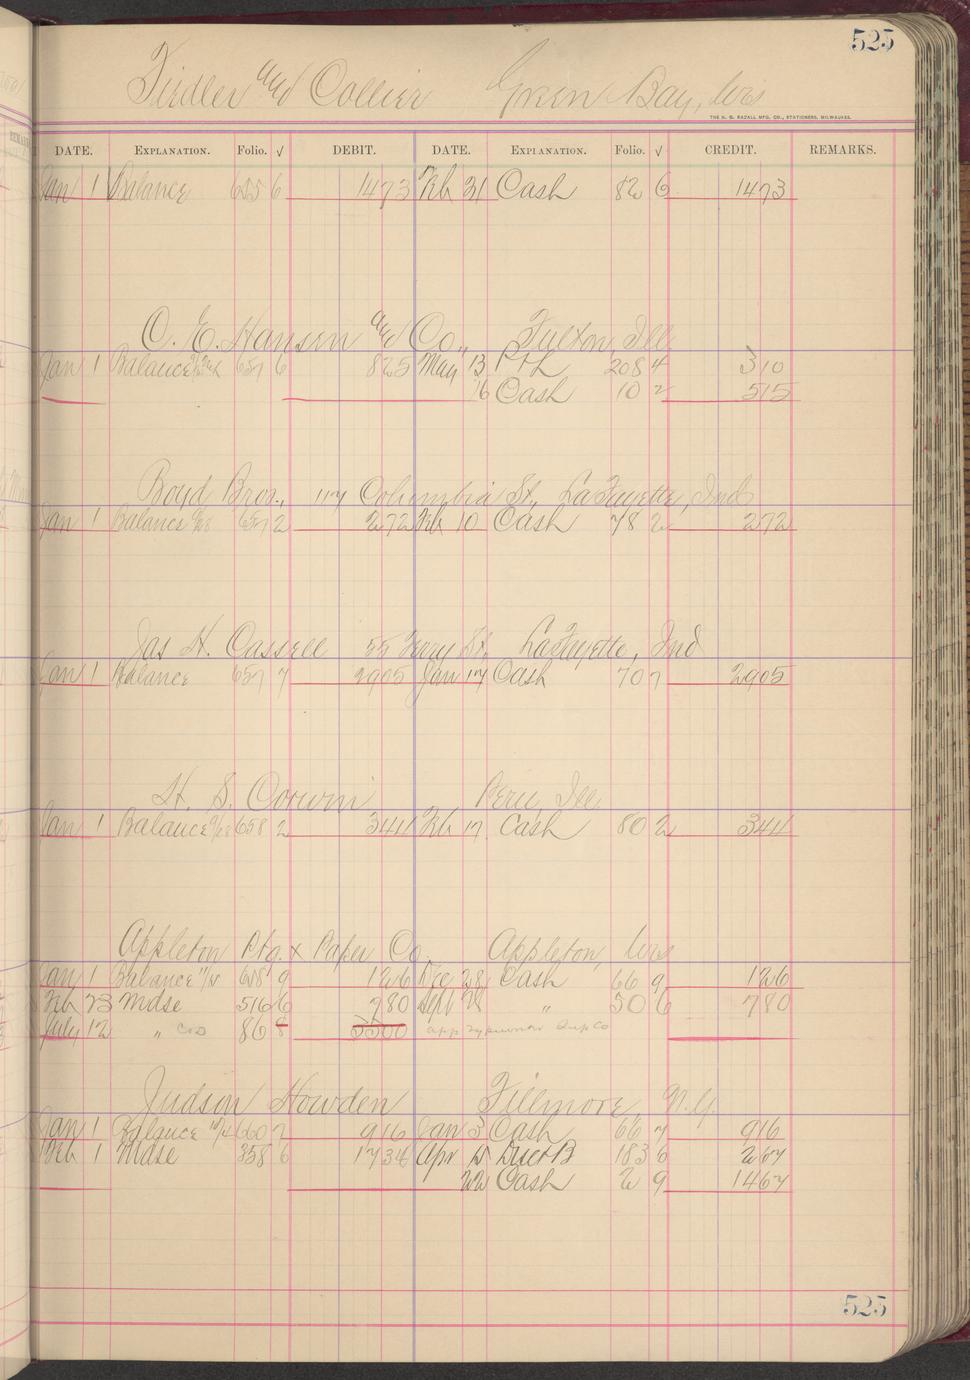 525
Fiedler and Collier Green Bay, Wis
THE H. G. RAZALL MFG. CO., STATIONERS, MILWAUKEE.
DATE. EXPLANATION. Folio. √ DEBIT. DATE. EXPLANATION. Folio. √ CREDIT. REMARKS.
Jan 1 Balance 655 6 1473 Feb 21 Cash 82 6 1473
C. E. Hansen and Co., Fulton, Ill
Jan 1 Balance 657 6 825 May 13 208 4 310
16 Cash 10 2 515
Boyd Bros., 117 Columbia St., LaFayette, Ind
Jan 1 Balance 657 2 272 Feb 10 Cash 78 2 272
Jas H. Cassell 55 Ferry St. LaFayette, Ind
Jan 1 Balance 657 7 2905 Jan 17 Cash 70 7 2905
H. S. Corwin Peru, Ill.
Jan 1 Balance 658 2 344 Feb 17 Cash 80 2 344
Appleton Ptg. & Paper Co. Appleton, Wis
Jan 1 Balance 658 9 126 Dec 28 Cash 66 9 126
Feb 23 Mdse 516 6 780 Sept 28 " 50 6 780
July 12 " COD 86 8 5500 app Typewriter Sup Co
Judson Howden Fillmore, N.Y.
Jan 1 Balance 660 7 916 Jan 3 Cash 66 7 916
Feb 1 Mdse 358 6 1734 Apr 15 183 6 267
22 Cash 2 9 1467
525